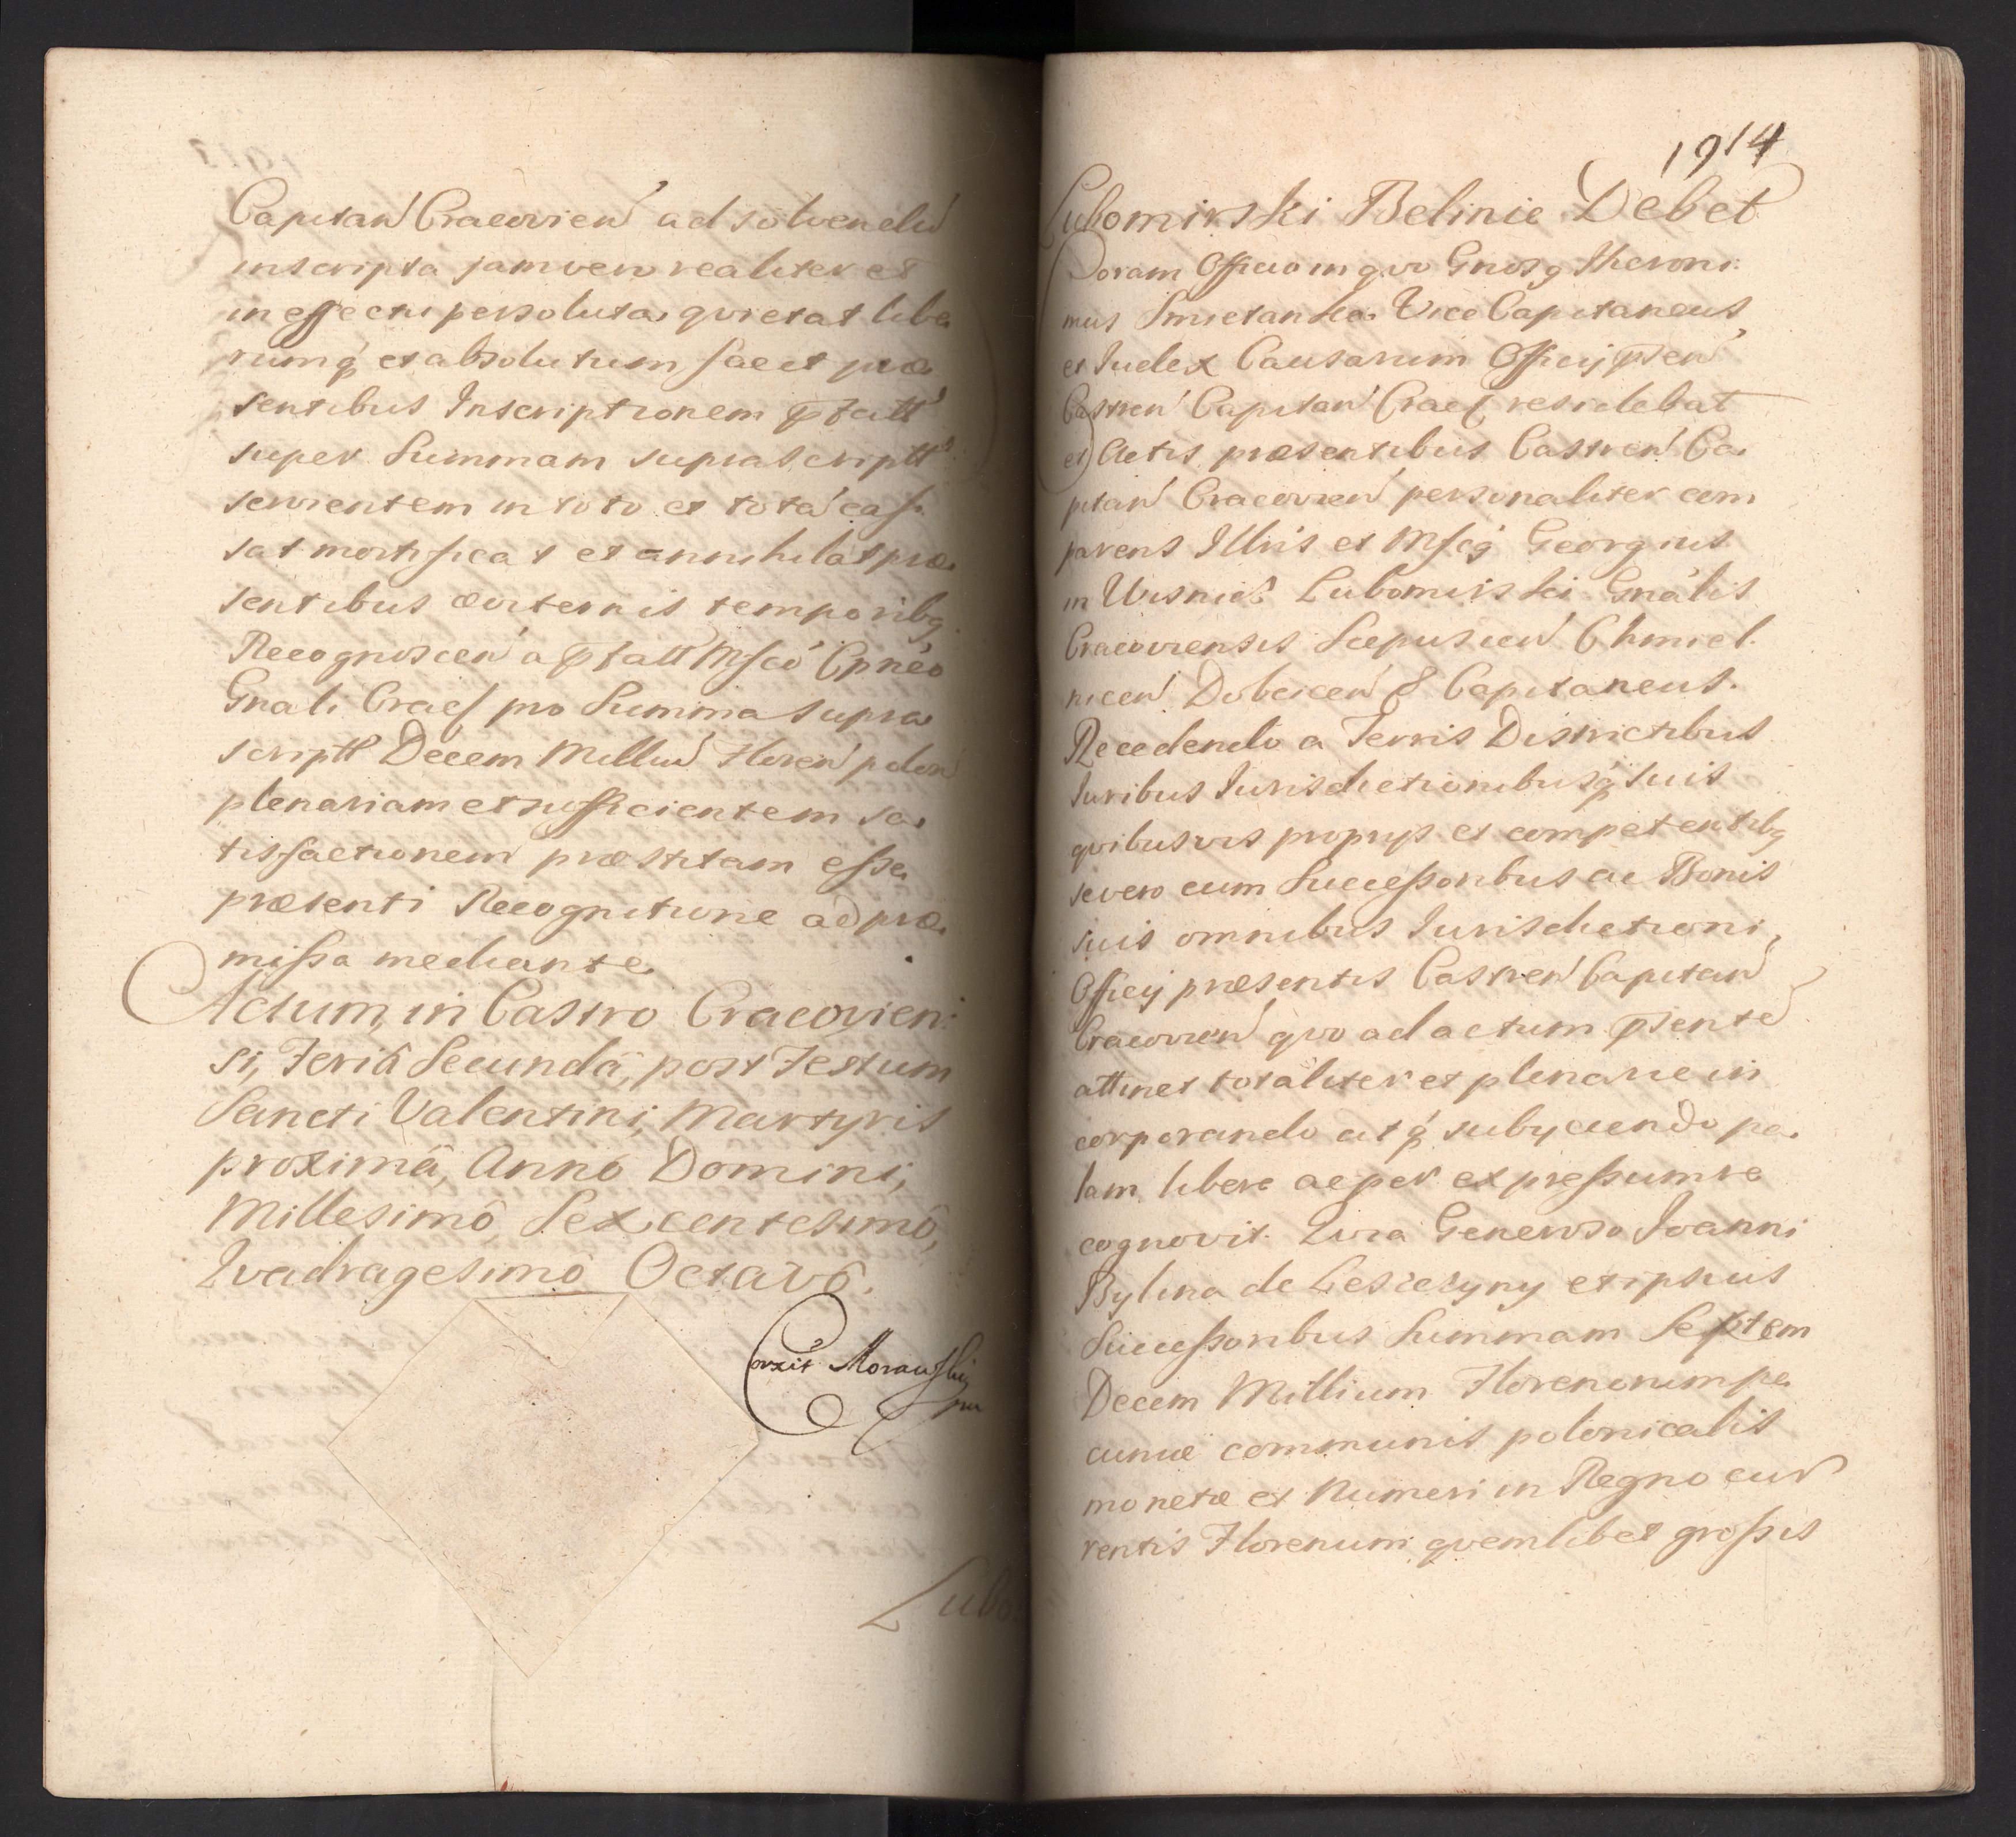 Capitan Cracovien ad solvendu
inscripta jamvero realiter et
in effectu persoluta quietat libe
rumq et absolutum facit præ
sentibus Inscriptionem pfatt
super Summam suprascriptt
servientem in toto et totá cas
sat mortificat et annihilat præ
sentibus æviternis temporibq
Recognoscen a pfatt Mfco Cpnéo
Gnali Cracf pro Summa supra
scriptt Decem Milliu Floren polon
plenariam et sufficientem sa
tisfactionem præstitam esse
præsenti Recognitione ad præ
missa mediante
Actum, in Castro Cracovien:
si, Feriâ Secundâ, post Festum
Sancti Valentini, Martyris
proximâ, Annô Domini,
Millesimô, Sexcentesimô,
Qvadragesimô Octavô.
Corxit Morawski
mp
Lubo
1914
Lubomirski Belinie Debet
Coram Officio in qvo Gnosq Iheroni:
mus Smietanka Vice Capitaneus
et Iudex Causarum Officij psen
Castren Capitan Cracf residebat
et Actis præsentibus Castren Ca
pitan Cracovien personaliter com
parens Illris et Mfcq Georgius
in Wisnicz Lubomirski Gnâlis
Cracoviensis Scepusien Chmiel
nicen Dobcicen & Capitaneus.
Recedendo a Terris Districtibus
Iuribus Iurisdictionibusq suis
qvibusvis proprijs et competentibq
se vero cum Successoribus ac Bonis
suis omnibus Iurisdictioni
Officij præsentis Castren Capitan
Cracovien qvo ad actum psente
attinet totaliter et plenarie in
corporando atq subijciendo pa
lam libere ac per expressum re
cognovit. Qvia Generoso Ioanni
Bylina de Lesczyny et ipsius
Successoribus Summam Septem
Decem Millium Florenorum pe
cuniæ communis polonicalis
monetæ et Numeri in Regno cur
rentis Florenum qvemlibet grossis